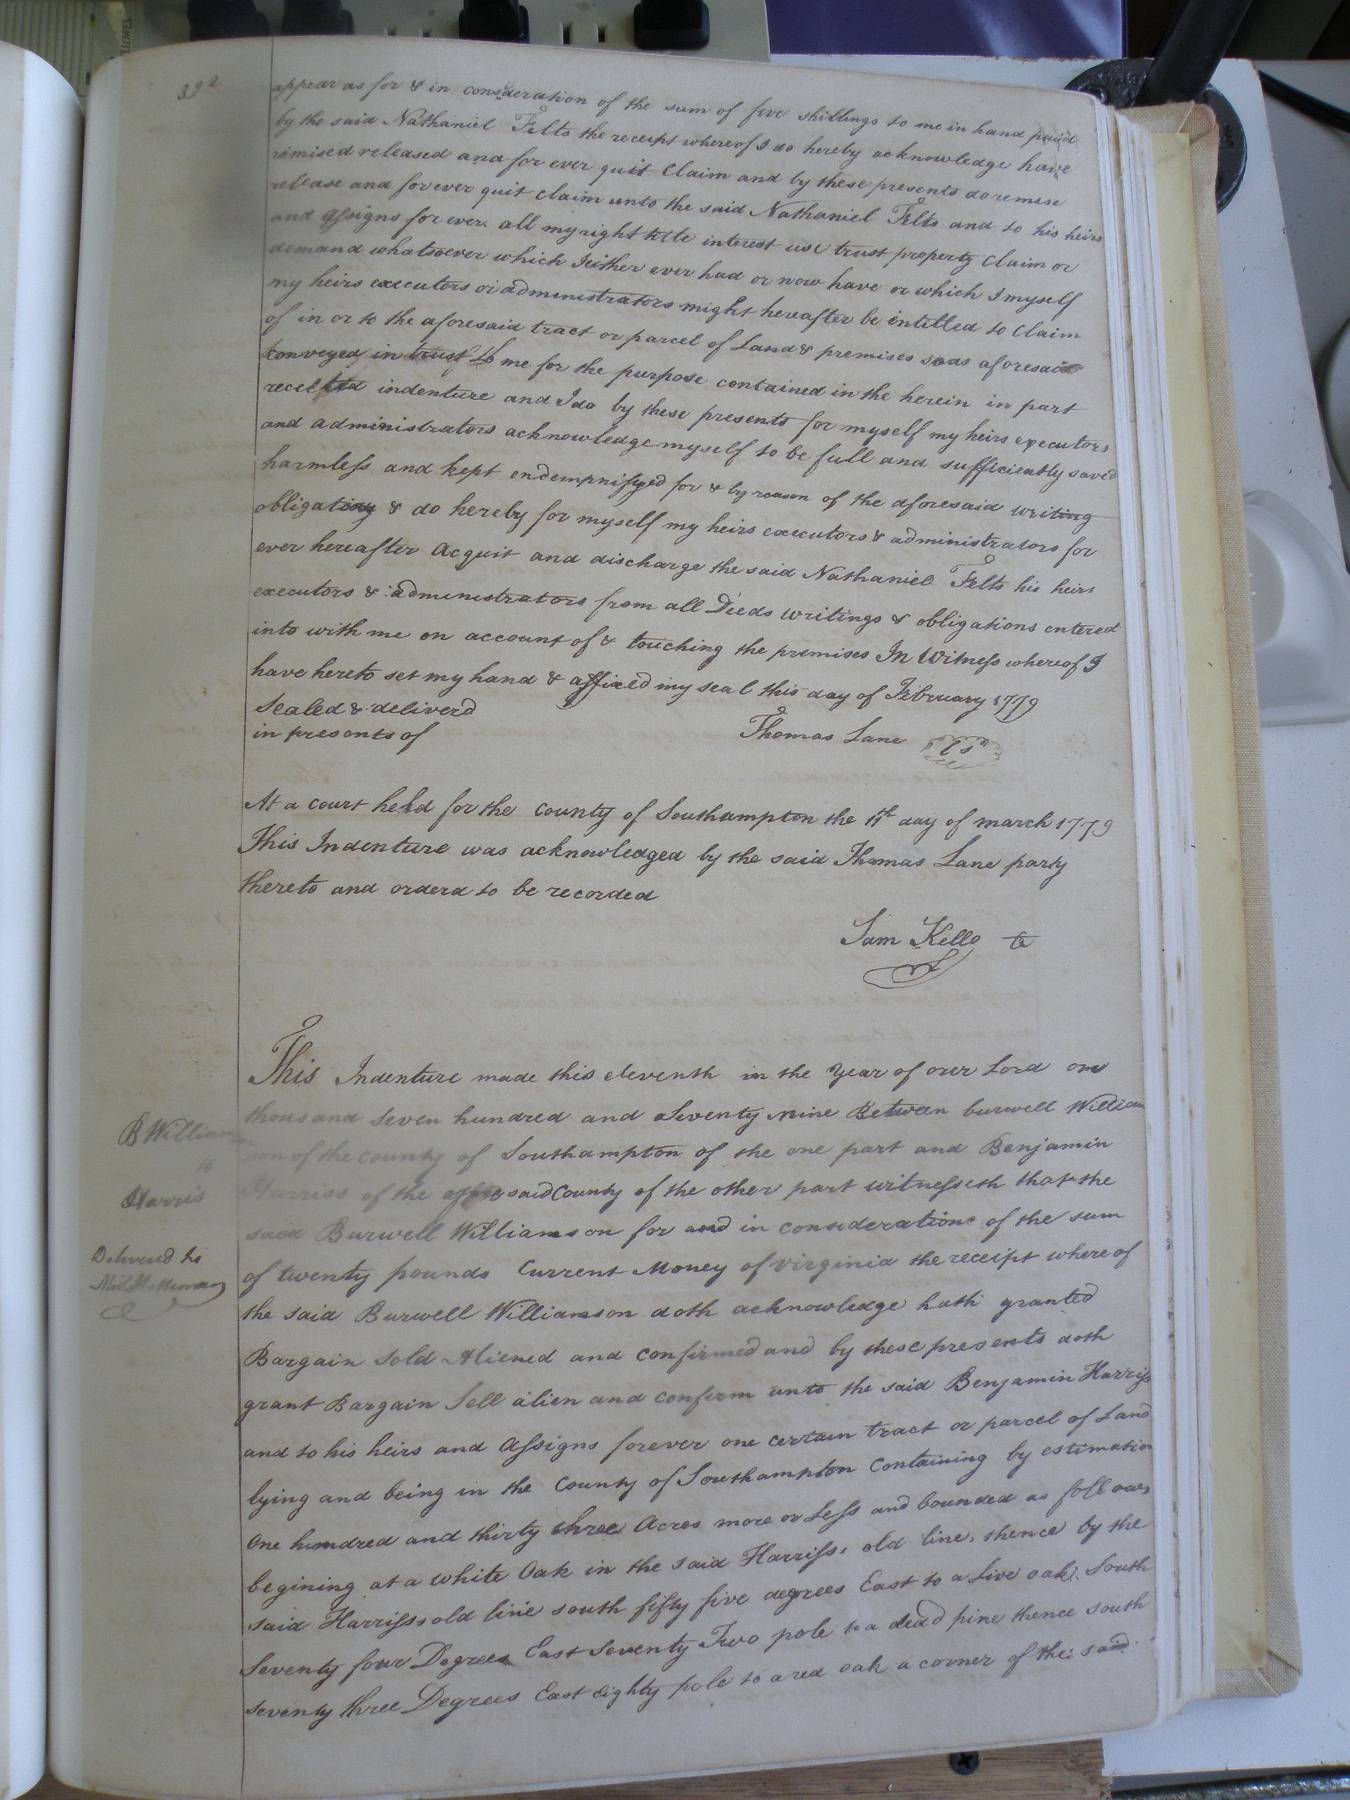 392
appear as for & in consideration of the sum of five shillings to me in hand paid
by the said Nathaniel Felts the receipt whereof I do hereby acknowledge have
remised released and for ever quit Claim and by these presents do remise
release and forever quit claim unto the said Nathaniel Felts and to his heirs
and assigns for ever all my right title interest use trust property claim or
demand whatsoever which I either ever had or now have or which I myself
my heirs executors or administrators might hereafter be intitled to claim
of in or to the aforesaid tract or parcel of Land & premises so as aforesaid
conveyed in trust to me for the purpose contained in the herein in part
recetted indenture and I do by these presents for myself my heirs executors
and administrators acknowledge myself to be full and sufficiently saved
harmless and kept endempnifyed for & by reason of the aforesaid writing
obligatory & do hereby for myself my heirs executors & administrators for
ever hereafter acquit and discharge the said Nathaniel Felts his heirs
executors & administrators from all Deeds writings & obligations entered
into with me on account of & touching the premises In Witness whereof I
have hereto set my hand & affixed my seal this day of February 1779
Sealed & deliverd
in presents of
Thomas Lane Ls
At a court held for the county of Southampton the 11th day of march 1779
This Indenture was acknowledged by the said Thomas Lane party
thereto and orderd to be recorded
Sam Kello
This Indenture made this eleventh in the Year of our Lord one
thousand Seven hundred and Seventy nine Between burwell William
son of the county of Southampton of the one part and Benjamin
Harriss of the afore said County of the other part witnesseth that the
said Burwell Williamson for and in consideration of the sum
of twenty pounds Current Money of virginia the receipt where of
the said Burwell Williamson doth acknowledge hath granted
Bargain Sold Aliened and confirmed and by these presents doth
grant Bargain Sell alien and confirm unto the said Benjamin Harriss
and to his heirs and Assigns forever one certain tract or parcel of Land
lying and being in the County of Southampton Containing by estimation
One hundred and thirty three Acres more or Less and bounded as followes
begining at a white Oak in the said Harriss, old line, thence by the
said Harrisss old line south fifty five degrees East to a Live oak, South
Seventy four Degrees East Seventy Two pole to a dead pine thence south
seventy three Degrees East eighty pole to a red oak a corner of the said
B William
to
Harris
Delivered to